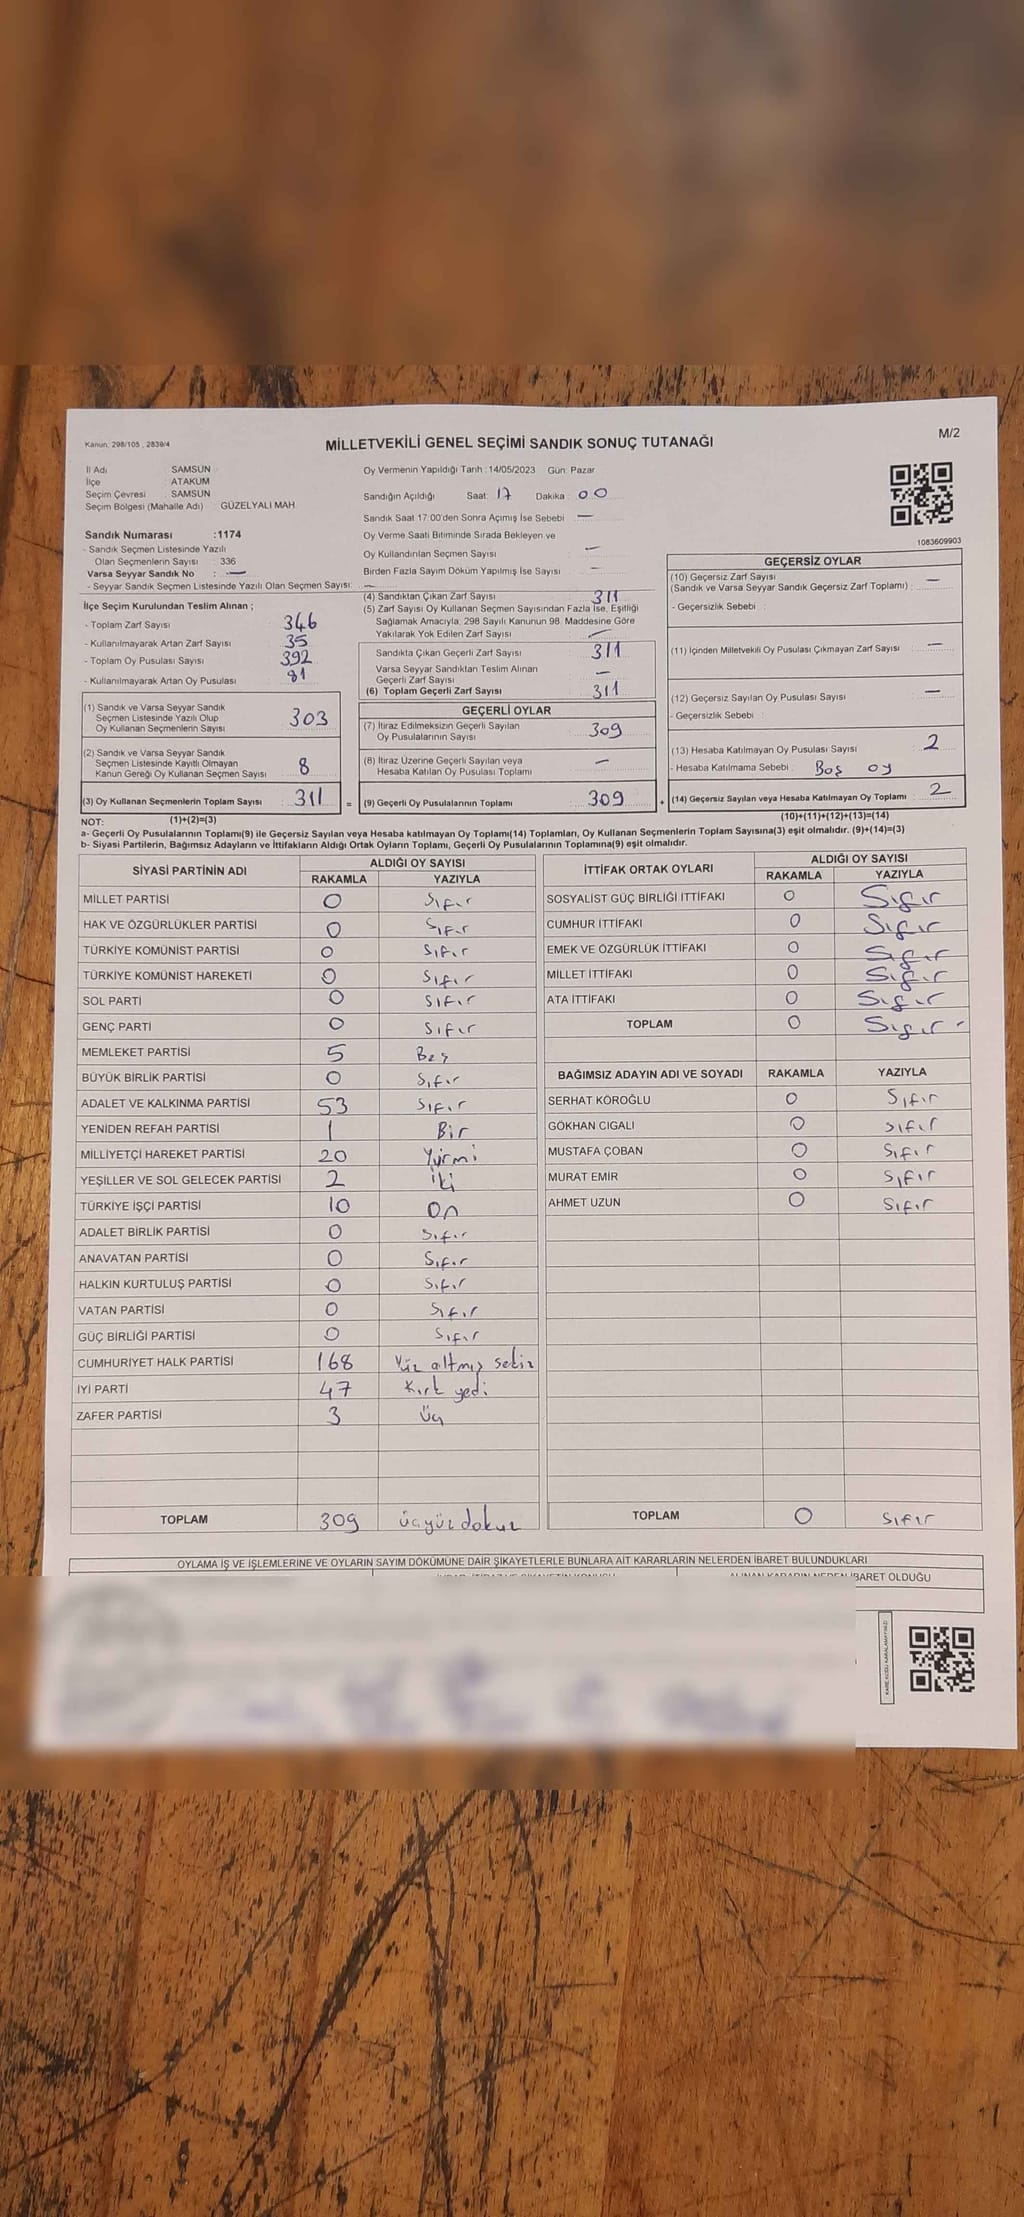 Kanun: 298/105 , 2839/4
MİLLETVEKİLİ GENEL SEÇİMİ SANDIK SONUÇ TUTANAĞI
M/2
İl Adı : SAMSUN
İlçe : ATAKUM
Seçim Çevresi : SAMSUN
Seçim Bölgesi (Mahalle Adı) : GÜZELYALI MAH.
Sandık Numarası :1174
- Sandık Seçmen Listesinde Yazılı
Olan Seçmenlerin Sayısı : 336
Varsa Seyyar Sandık No : —
- Seyyar Sandık Seçmen Listesinde Yazılı Olan Seçmen Sayısı: —
Oy Vermenin Yapıldığı Tarih :14/05/2023 Gün: Pazar
Sandığın Açıldığı Saat: 17 Dakika : 00
Sandık Saat 17:00'den Sonra Açımış İse Sebebi : —
Oy Verme Saati Bitiminde Sırada Bekleyen ve
Oy Kullandırılan Seçmen Sayısı : —
Birden Fazla Sayım Döküm Yapılmış İse Sayısı : —
1083609903
İlçe Seçim Kurulundan Teslim Alınan ;
- Toplam Zarf Sayısı : 346
- Kullanılmayarak Artan Zarf Sayısı : 35
- Toplam Oy Pusulası Sayısı : 392
- Kullanılmayarak Artan Oy Pusulası : 81
(1) Sandık ve Varsa Seyyar Sandık
Seçmen Listesinde Yazılı Olup
Oy Kullanan Seçmenlerin Sayısı : 303
(2) Sandık ve Varsa Seyyar Sandık
Seçmen Listesinde Kayıtlı Olmayan
Kanun Gereği Oy Kullanan Seçmen Sayısı : 8
(3) Oy Kullanan Seçmenlerin Toplam Sayısı : 311
(4) Sandıktan Çıkan Zarf Sayısı : 311
(5) Zarf Sayısı Oy Kullanan Seçmen Sayısından Fazla İse, Eşitliği
Sağlamak Amacıyla, 298 Sayılı Kanunun 98. Maddesine Göre
Yakılarak Yok Edilen Zarf Sayısı : —
Sandıkta Çıkan Geçerli Zarf Sayısı : 311
Varsa Seyyar Sandıktan Teslim Alınan
Geçerli Zarf Sayısı : —
(6) Toplam Geçerli Zarf Sayısı : 311
GEÇERLİ OYLAR
(7) İtiraz Edilmeksizin Geçerli Sayılan
Oy Pusulalarının Sayısı : 309
(8) İtiraz Üzerine Geçerli Sayılan veya
Hesaba Katılan Oy Pusulası Toplamı : —
= (9) Geçerli Oy Pusulalarının Toplamı : 309
GEÇERSİZ OYLAR
(10) Geçersiz Zarf Sayısı
(Sandık ve Varsa Seyyar Sandık Geçersiz Zarf Toplamı) : —
- Geçersizlik Sebebi :
(11) İçinden Milletvekili Oy Pusulası Çıkmayan Zarf Sayısı : —
(12) Geçersiz Sayılan Oy Pusulası Sayısı : —
- Geçersizlik Sebebi :
(13) Hesaba Katılmayan Oy Pusulası Sayısı : 2
- Hesaba Katılmama Sebebi : Boş oy
+ (14) Geçersiz Sayılan veya Hesaba Katılmayan Oy Toplamı : 2
NOT: (1)+(2)=(3) (10)+(11)+(12)+(13)=(14)
a- Geçerli Oy Pusulalarının Toplamı(9) ile Geçersiz Sayılan veya Hesaba katılmayan Oy Toplamı(14) Toplamları, Oy Kullanan Seçmenlerin Toplam Sayısına(3) eşit olmalıdır. (9)+(14)=(3)
b- Siyasi Partilerin, Bağımsız Adayların ve İttifakların Aldığı Ortak Oyların Toplamı, Geçerli Oy Pusulalarının Toplamına(9) eşit olmalıdır.
SİYASİ PARTİNİN ADI ALDIĞI OY SAYISI
RAKAMLA YAZIYLA
MİLLET PARTİSİ 0 Sıfır
HAK VE ÖZGÜRLÜKLER PARTİSİ 0 Sıfır
TÜRKİYE KOMÜNİST PARTİSİ 0 Sıfır
TÜRKİYE KOMÜNİST HAREKETİ 0 Sıfır
SOL PARTİ 0 Sıfır
GENÇ PARTİ 0 Sıfır
MEMLEKET PARTİSİ 5 Beş
BÜYÜK BİRLİK PARTİSİ 0 Sıfır
ADALET VE KALKINMA PARTİSİ 53 Sıfır
YENİDEN REFAH PARTİSİ 1 Bir
MİLLİYETÇİ HAREKET PARTİSİ 20 Yirmi
YEŞİLLER VE SOL GELECEK PARTİSİ 2 iki
TÜRKİYE İŞÇİ PARTİSİ 10 On
ADALET BİRLİK PARTİSİ 0 Sıfır
ANAVATAN PARTİSİ 0 Sıfır
HALKIN KURTULUŞ PARTİSİ 0 Sıfır
VATAN PARTİSİ 0 Sıfır
GÜÇ BİRLİĞİ PARTİSİ 0 Sıfır
CUMHURİYET HALK PARTİSİ 168 Yüz altmış sekiz
İYİ PARTİ 47 Kırk yedi
ZAFER PARTİSİ 3 Üç
TOPLAM 309 üçyüz dokuz
İTTİFAK ORTAK OYLARI ALDIĞI OY SAYISI
RAKAMLA YAZIYLA
SOSYALİST GÜÇ BİRLİĞİ İTTİFAKI 0 Sıfır
CUMHUR İTTİFAKI 0 Sıfır
EMEK VE ÖZGÜRLÜK İTTİFAKI 0 Sıfır
MİLLET İTTİFAKI 0 Sıfır
ATA İTTİFAKI 0 Sıfır
TOPLAM 0 Sıfır
BAĞIMSIZ ADAYIN ADI VE SOYADI RAKAMLA YAZIYLA
SERHAT KÖROĞLU 0 Sıfır
GÖKHAN CIGALI 0 Sıfır
MUSTAFA ÇOBAN 0 Sıfır
MURAT EMİR 0 Sıfır
AHMET UZUN 0 Sıfır
TOPLAM 0 Sıfır
OYLAMA İŞ VE İŞLEMLERİNE VE OYLARIN SAYIM DÖKÜMÜNE DAİR ŞİKAYETLERLE BUNLARA AİT KARARLARIN NELERDEN İBARET BULUNDUKLARI
ALINAN KARARIN NEDEN İBARET OLDUĞU
KARE KODU KARALAMAYINIZ!